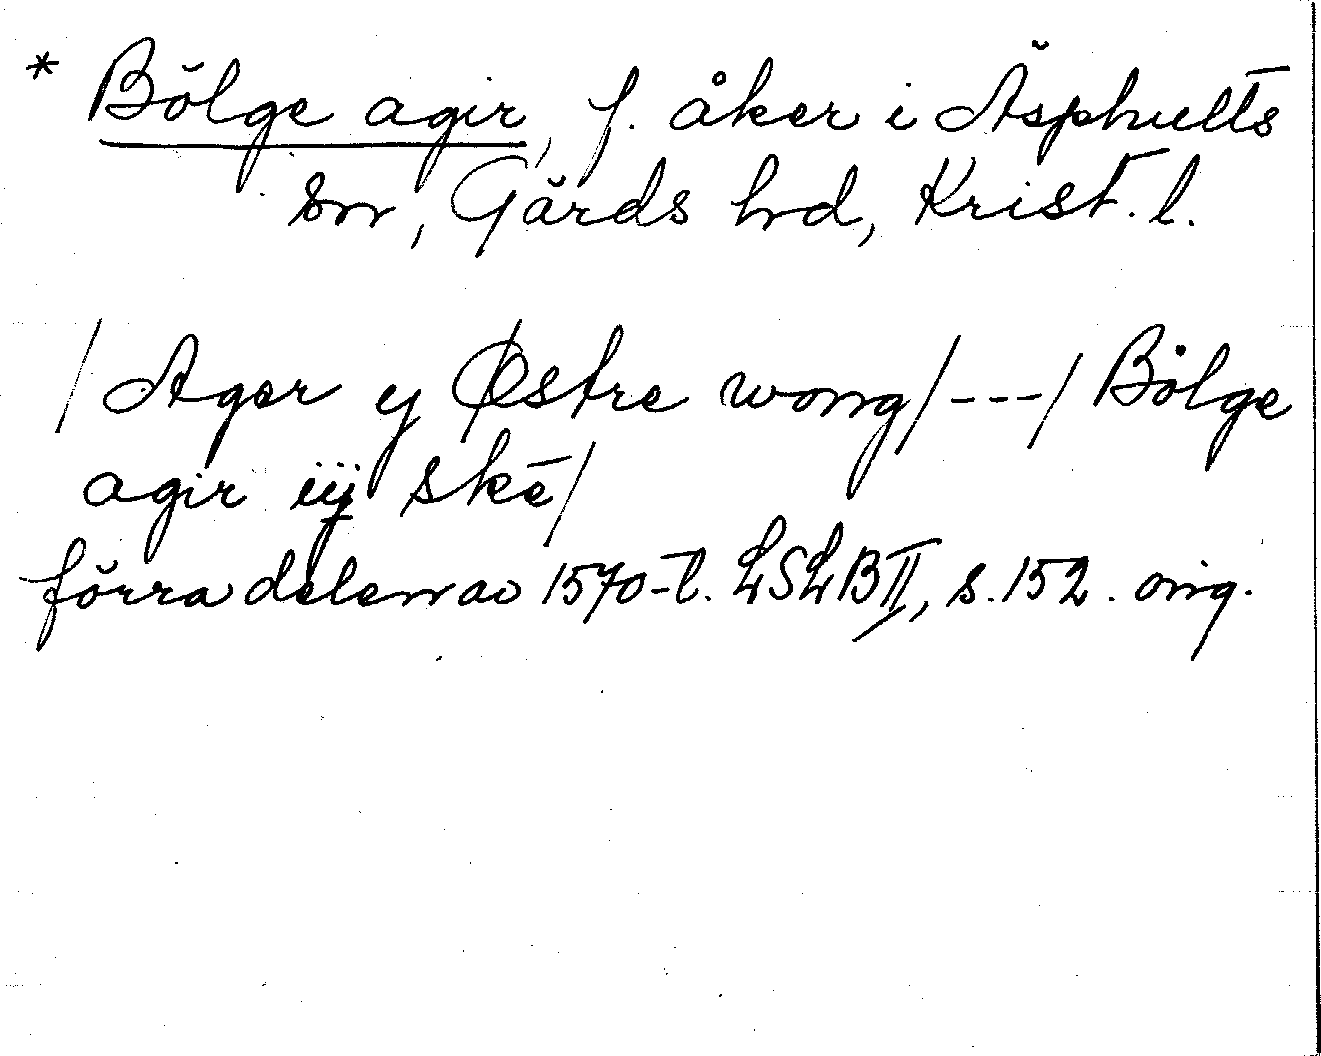 * Bölge agir, f. åker i Äsphults
sn, Gärds hd, Krist. l.
/Ager y Østre wong/---/Bölge
agir iij skē/
förra delen av 1570-t. LSLB II, s. 152. orig.